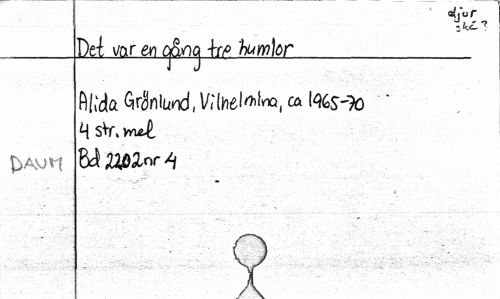 djur
Det var en gång tre humlor
Alida Grönlund, Vilhelmina, ca 1965-70
4 str. mel
DAUM Bd 2202 nr 4